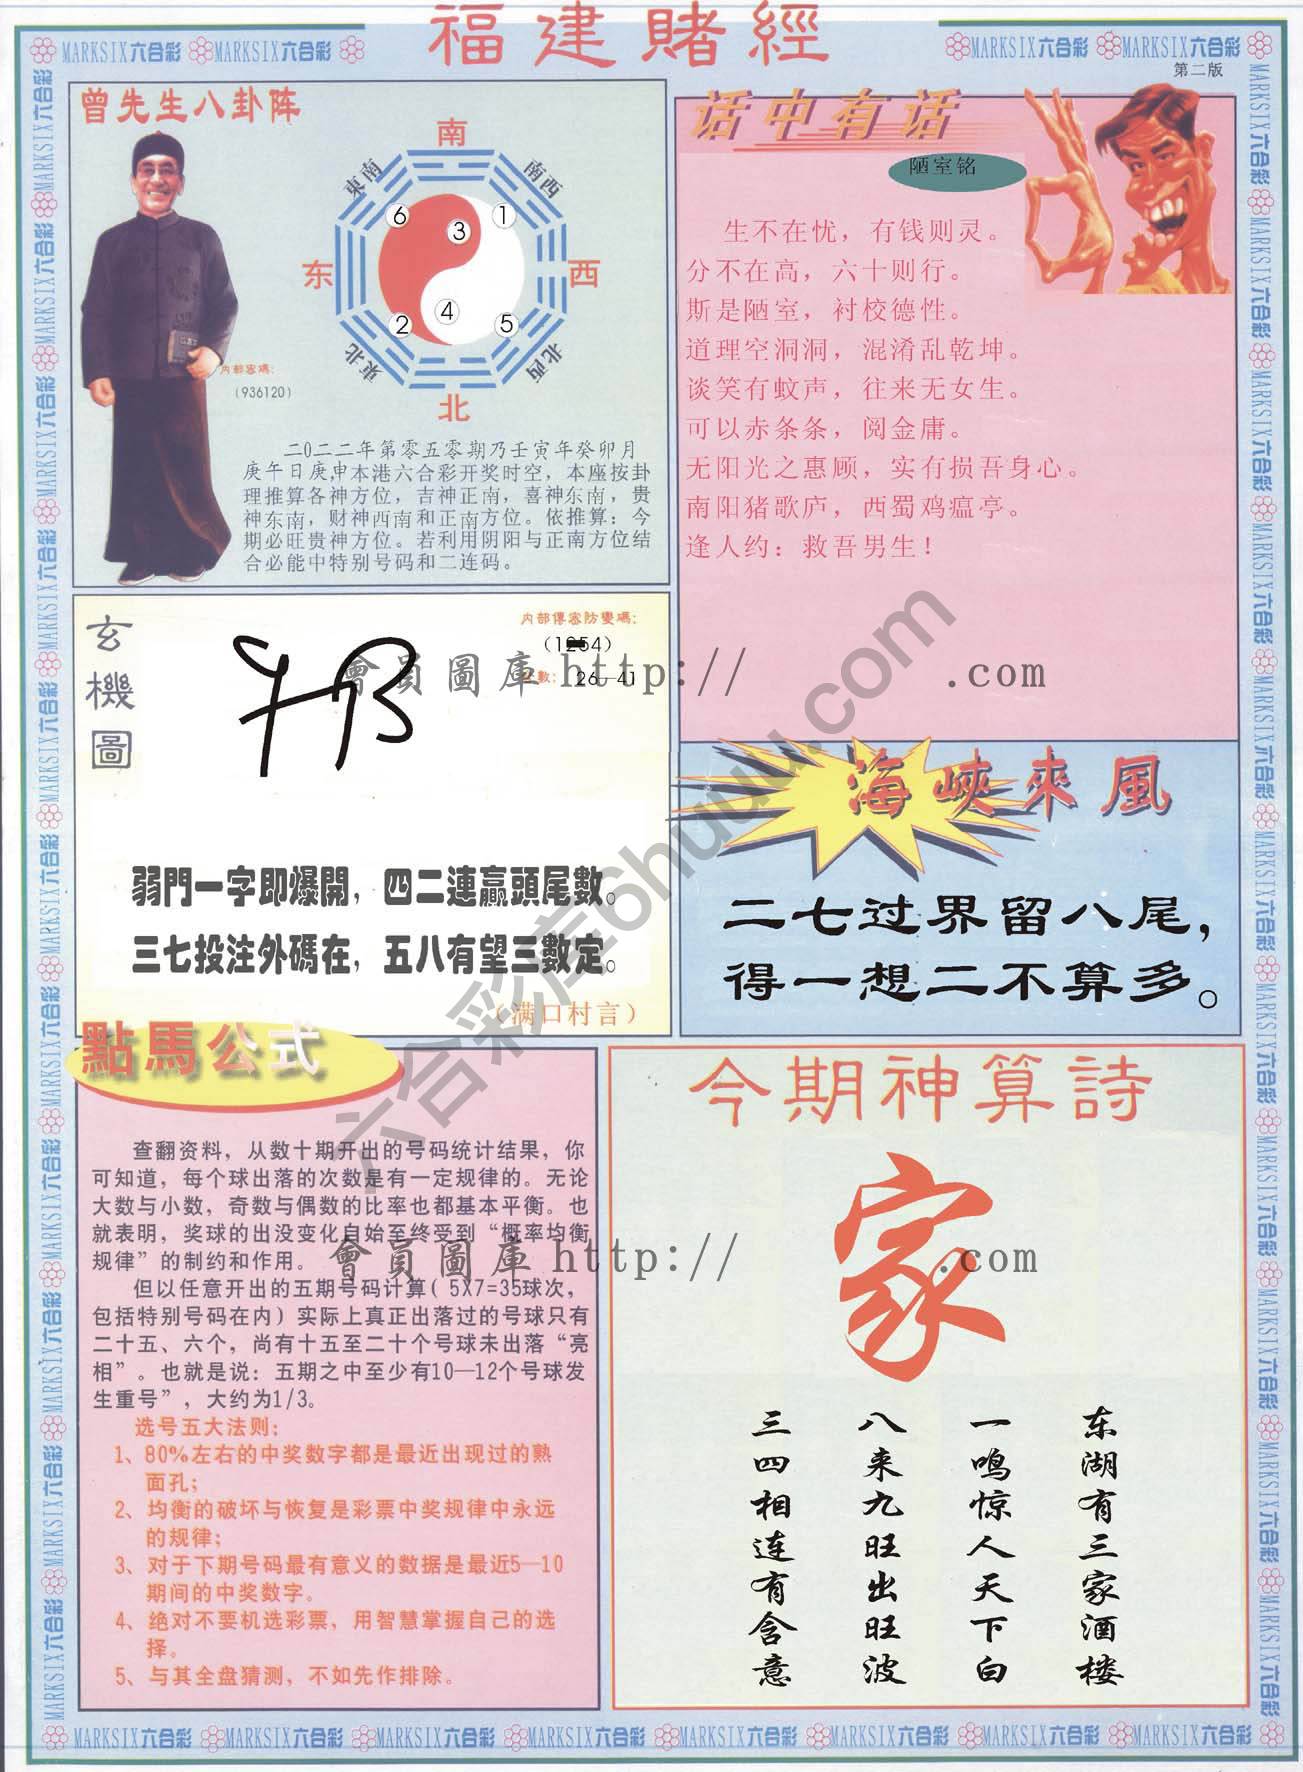 福建賭經
MARKSIX六合彩 MARKSIX六合彩
MARKSIX六合彩 MARKSIX六合彩
第二版
曾先生八卦阵
南
東南
南西
6
1
3
东
西
4
2
5
東北
北西
北
内部密碼:
(936120)
二0二二年第零五零期乃壬寅年癸卯月
庚午日庚申本港六合彩开奖时空，本座按卦
理推算各神方位，吉神正南，喜神东南，贵
神东南，财神西南和正南方位。依推算：今
期必旺贵神方位。若利用阴阳与正南方位结
合必能中特别号码和二连码。
话中有话
陋室铭
生不在忧，有钱则灵。
分不在高，六十则行。
斯是陋室，衬校德性。
道理空洞洞，混淆乱乾坤。
谈笑有蚊声，往来无女生。
可以赤条条，阅金庸。
无阳光之惠顾，实有损吾身心。
南阳猪歌庐，西蜀鸡瘟亭。
逢人约：救吾男生！
玄機圖
内部傳密防變碼:
數: 26—41
會員圖庫 http:// .com
弱門一字即爆開，四二連贏頭尾數。
三七投注外碼在，五八有望三數定。
（满口村言）
海峽來風
二七过界留八尾，
得一想二不算多。
六合彩库6huuu.com
點馬公式
查翻资料，从数十期开出的号码统计结果，你
可知道，每个球出落的次数是有一定规律的。无论
大数与小数，奇数与偶数的比率也都基本平衡。也
就表明，奖球的出没变化自始至终受到“概率均衡
规律”的制约和作用。
但以任意开出的五期号码计算( 5X7=35球次，
包括特别号码在内）实际上真正出落过的号球只有
二十五、六个，尚有十五至二十个号球未出落“亮
相”。也就是说：五期之中至少有10—12个号球发
生重号”，大约为1/3。
选号五大法则；
1、80%左右的中奖数字都是最近出现过的熟
面孔；
2、均衡的破坏与恢复是彩票中奖规律中永远
的规律；
3、对于下期号码最有意义的数据是最近5—10
期间的中奖数字。
4、绝对不要机选彩票，用智慧掌握自己的选
择。
5、与其全盘猜测，不如先作排除。
今期神算詩
家
會員圖庫 http:// .com
东湖有三家酒楼
一鸣惊人天下白
八来九旺出旺波
三四相连有含意
MARKSIX六合彩 MARKSIX六合彩 MARKSIX六合彩 MARKSIX六合彩 MARKSIX六合彩 MARKSIX六合彩 MARKSIX六合彩 MARKSIX六合彩